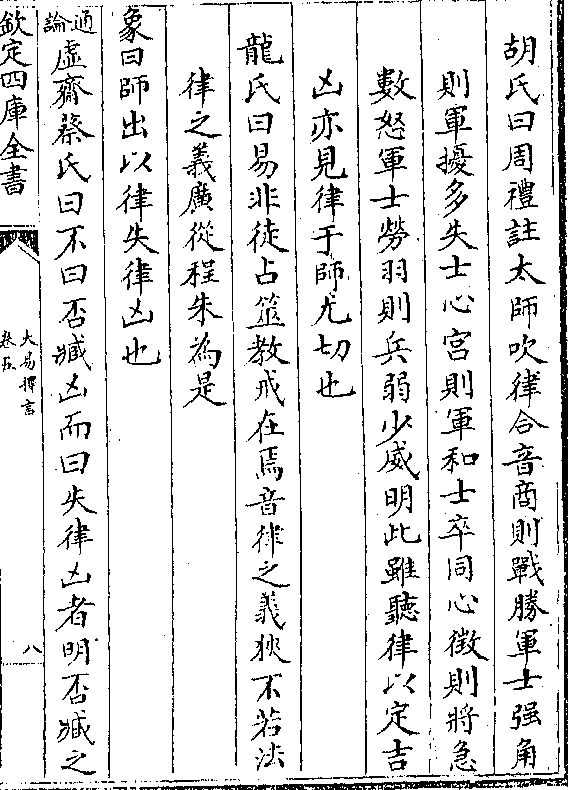 胡氏曰周禮註太師吹律合音商則戰勝軍士强角
則軍擾多失士心宮則軍和士卒同心徵則將急
數怒軍士勞羽則兵弱少威明此雖聽律以定吉
凶亦見律于師尤切也
龍氏曰易非徒占筮教戒在焉音律之義狹不若法
律之義廣從程朱為是
象曰師出以律失律凶也
通論虛齋蔡氏曰不曰否臧凶而曰失律凶者明否臧之
欽定四庫全書
大易擇言
卷五
八